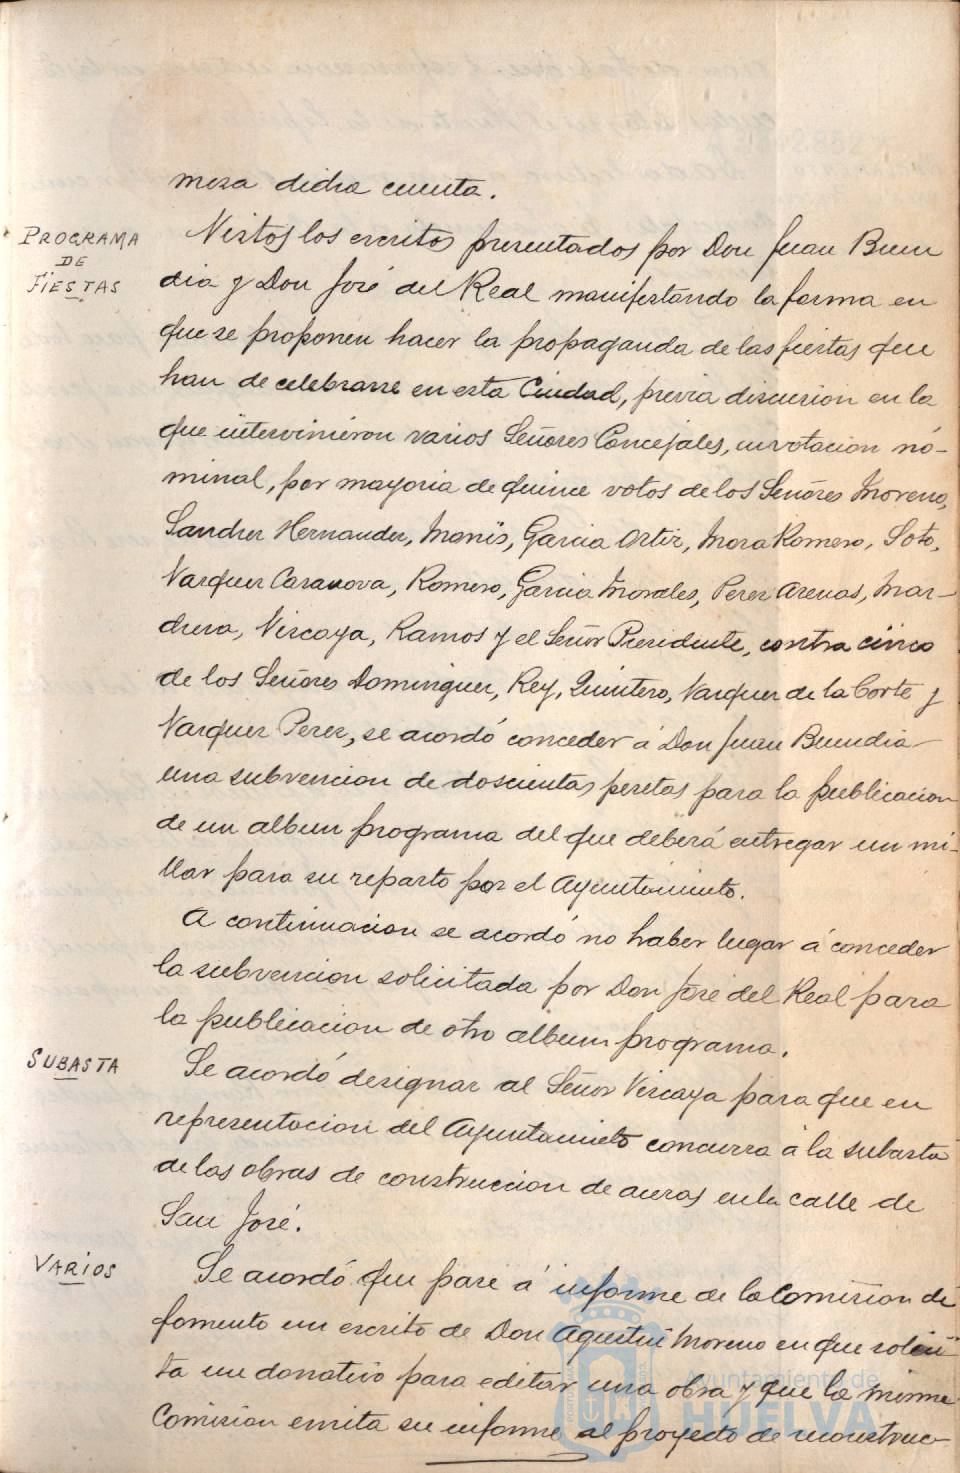 mesa dicha cuenta.
PROGRAMA
DE
FIESTAS
Vistos los escritos presentados por Don Juan Buen
dia y Don José del Real manifestando la forma en
que se proponen hacer la propaganda de las fiestas que
han de celebrarse en esta Ciudad, previa discusion en la
que intervinieron varios Señores Concejales, en votacion no-
minal, por mayoria de quince votos de los Señores Moreno,
Sanchez Hernandez, Monis, Garcia Ortiz, Mora Romero, Soto,
Vazquez Casanova, Romero, Garcia Morales, Perez Arenas, Mar-
chena, Vizcaya, Ramos y el Señor Presidente, contra cinco
de los Señores Dominguez, Rey, Quintero, Vazquez de la Corte y
Vazquez Perez, se acordó conceder á Don Juan Buendia
una subvencion de doscientas pesetas para la publicacion
de un album programa del que deberá entregar un mi-
llar para su reparto por el Ayuntamiento.
A continuacion se acordó no haber lugar á conceder
la subvencion solicitada por Don José del Real para
la publicacion de otro album programa.
SUBASTA
Se acordó designar al Señor Vizcaya para que en
representacion del Ayuntamieto concurra á la subasta
de las obras de construccion de aceras en la calle de
San José.
VARIOS
Se acordó que pase á informe de la Comision de
fomento un escrito de Don Agustin Moreno en que solici-
ta un donativo para editar una obra y que la misma
Comision emita su informe al proyecto de reconstruc-
Ayuntamiento de
HUELVA